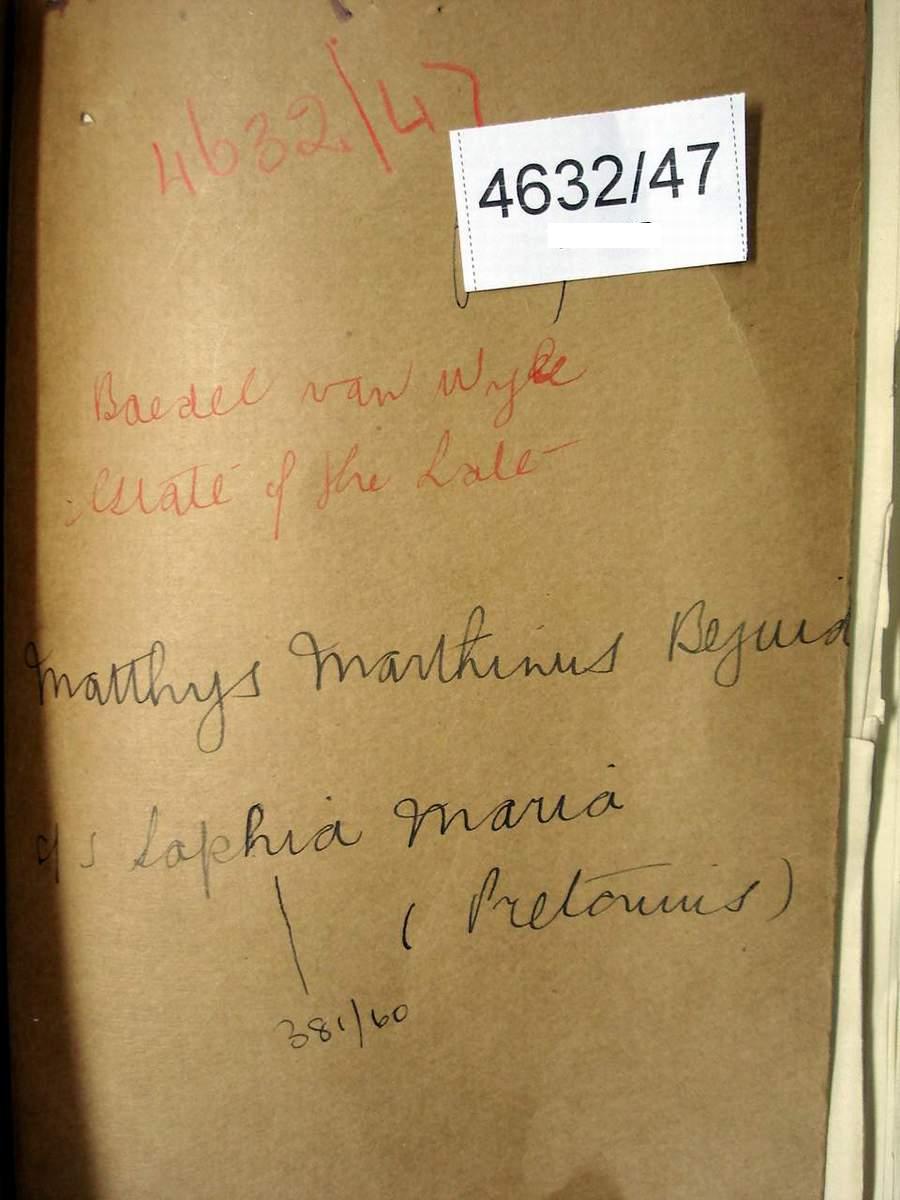 4632/47
4632/47
Boedel van Wyle
Estate of the Late
Matthys Marthinus Bejuid
g/s Sophia Maria
( Pretorius )
381/60